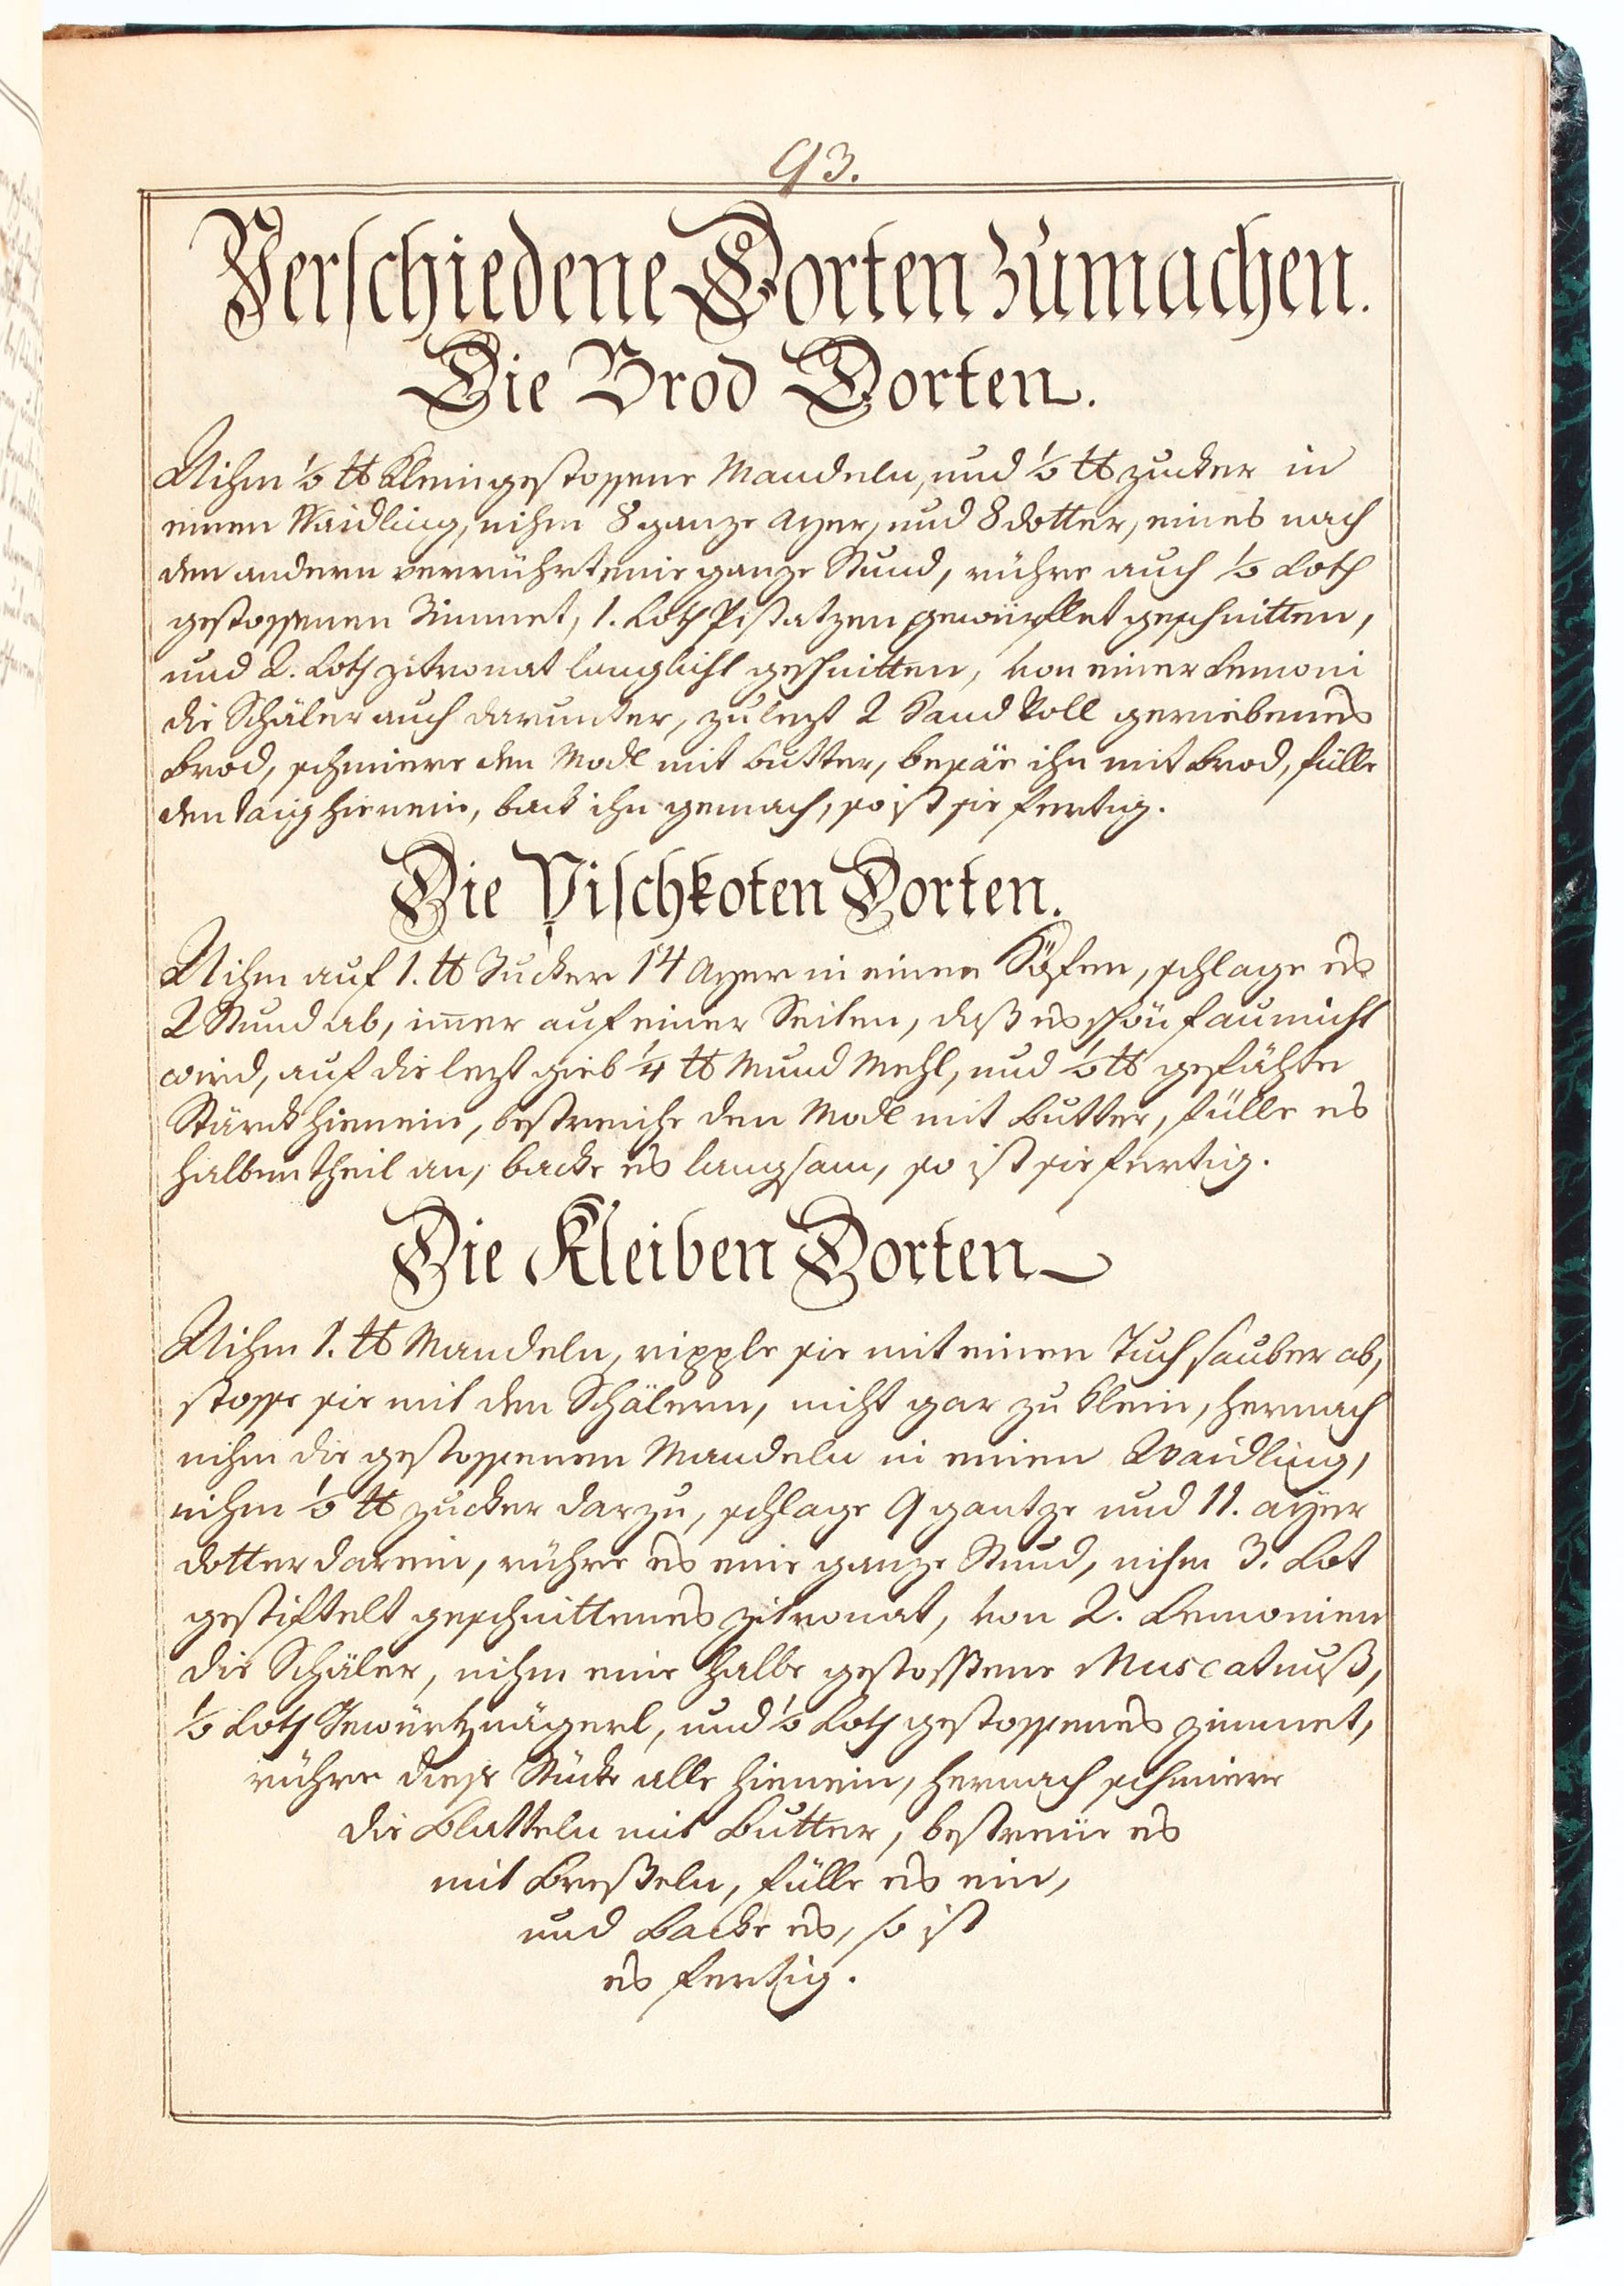 93.
Verschiedene Dorten zumachen.
Die Brod Dorten.
Nihm ½ ℔ klein gestossene Mandeln, und ½ ℔ zucker in
einen Waidling, nihm 8 ganze Ayer, und 8 dotter, eines nach
den andern verrührt eine ganze Stund, rühre auch ½ Loth
gestossenen Zimmet, 1. Loth Pistatzen gewürfflet geschnitten,
und 2. Loth zitronat langlicht geschnitten, von einer Lemoni
die Schäler auch darunter, zu lezt 2 Hand voll geriebenes
Brod, schmiere den Modl mit butter, besäe ihn mit Brod, fülle
den taig hienein, back ihn gemach, so ist sie fertig.
Die Pischkoten Dorten.
Nihm auf 1. ℔ Zucker 14 Ayer in einen Häfen, schlage es
2 Stund ab, im̅er auf einer Seiten, daß es schön faumicht
wird, auf die lezt gieb ¼ ℔ Mund Mehl, und ½ ℔ gefähte
Stärck hienein, bestreiche den Modl mit Butter, fülle es
halben theil an, backe es langsam, so ist sie fertig.
Die Kleiben Dorten
Nihm 1. ℔ Mandeln, ripple sie mit einen Tuch sauber ab,
stosse sie mit den Schälern, nicht gar zu klein, hernach
nihm die gestossenen Mandeln in einen Waidling,
nihm ½ ℔ zucker darzu, schlage 9 gantze und 11. ayer
dotter darein, rühre es eine ganze Stund, nihm 3. Lot
gestiftelt geschnittenes zitronat, von 2. Lemonien
die Schäler, nihm eine halbe gestossene Muscatnuß,
½ Loth Gewürtznägerl, und ½ Loth gestossenes zimmet,
rühre diese Stücke alle hienein, hernach schmiere
die Blatteln mit Butter, bestreüe es
mit Breßeln, fülle es ein,
und Backe es, so ist
es fertig.